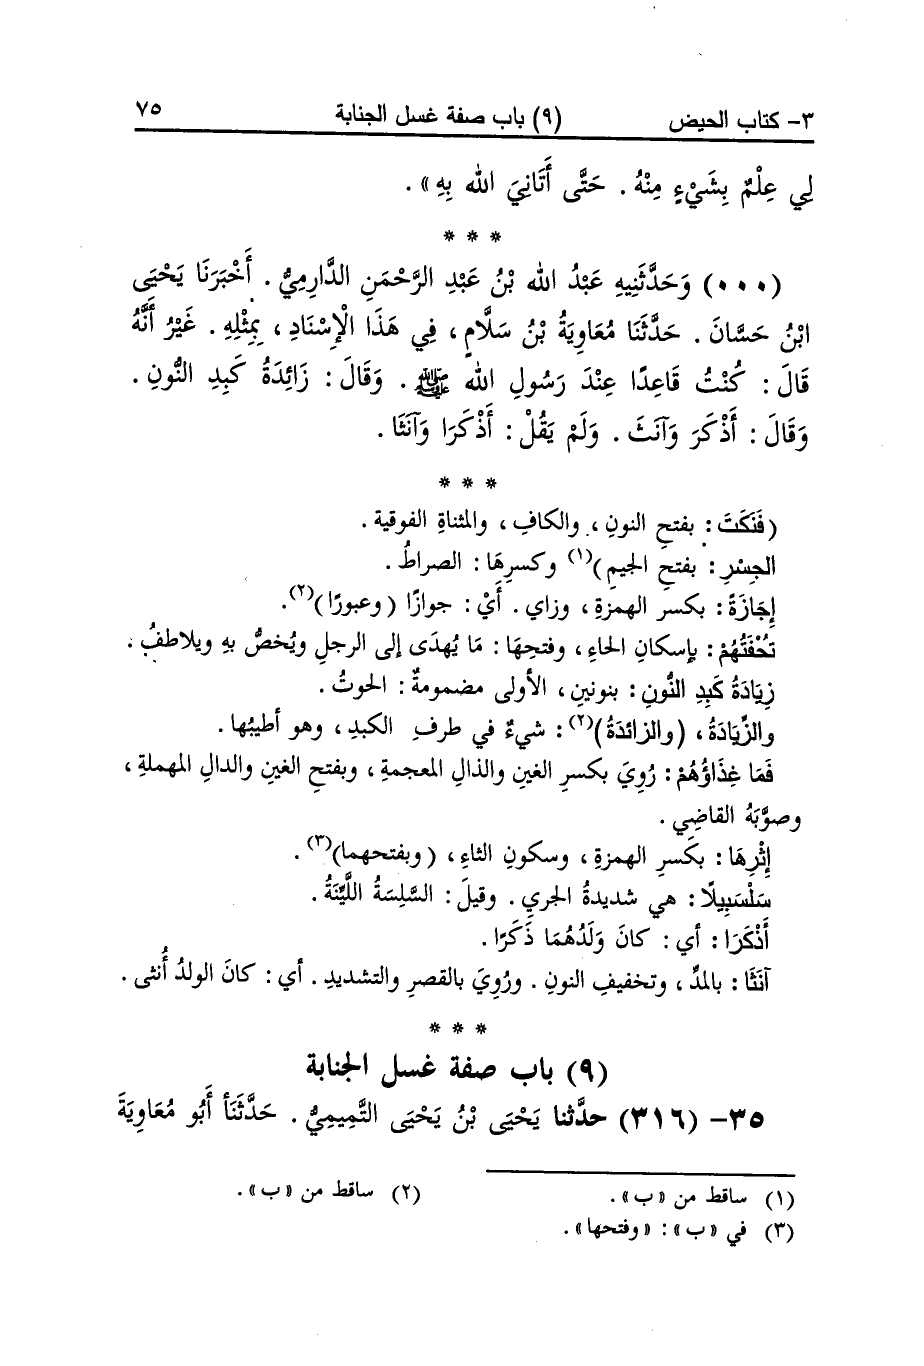 ٣- كتاب الحيض (٩) باب صفة غسل الجنابة ٧٥
لِي عِلْمٌ بِشَيْءٍ مِنْهُ . حَتَّى أَتَانِيَ الله بِهِ» .
* * *
(٠٠٠) وَحَدَّثَنِيهِ عَبْدُ الله بْنُ عَبْدِ الرَّحْمَنِ الدَّارِمِيُّ . أَخْبَرَنَا يَحْيَى
ابْنُ حَسَّانَ . حَدَّثَنَا مُعَاوِيَةُ بْنُ سَلَّامٍ ، فِي هَذَا الْإِسْنَادِ ، بِمِثْلِهِ . غَيْرُ أَنَّهُ
قَالَ : كُنْتُ قَاعِدًا عِنْدَ رَسُولِ الله ﷺ . وَقَالَ : زَائِدَةُ كَبِدِ النُّونِ .
وَقَالَ : أَذْكَرَ وَآنَثَ . وَلَمْ يَقُلْ : أَذْكَرَا وَآنَثَا .
* * *
(فَنَكَتَ : بفتحِ النونِ ، والكافِ ، والمثناةِ الفوقية .
الجِسْرِ : بفتحِ الجيمِ)(١) وكسرِهَا : الصراطُ .
إِجَازَةً : بكسر الهمزةِ ، وزاي . أَيْ : جوازًا (وعبورًا)(٢).
تُحْفَتُهُمْ : بإسكانِ الحاءِ ، وفتحِهَا : مَا يُهدَى إلى الرجلِ ويُخصُّ بهِ ويلاطفُ .
زِيَادَةُ كَبِدِ النُّونِ : بنونينِ ، الأولى مضمومةٌ : الحوتُ .
والزِّيَادَةُ ، (والزائدَةُ)(٢) : شيءٌ في طرفِ الكبدِ ، وهو أطيبُها .
فَمَا غِذَاؤُهُمْ : رُوِيَ بكسرِ الغينِ والذالِ المعجمةِ ، وبفتحِ الغينِ والدالِ المهملةِ ،
وصوَّبَهُ القاضِي .
إِثْرِهَا : بكسرِ الهمزةِ ، وسكونِ الثاءِ ، (وبفتحهما)(٣) .
سَلْسَبِيلًا : هي شديدةُ الجري . وقيلَ : السَّلِسَةُ اللَّيِّنَةُ .
أَذْكَرَا : أي : كانَ وَلَدُهُمَا ذَكَرًا .
آنَثَا : بالمدِّ ، وتخفيفِ النونِ . ورُوِيَ بالقصرِ والتشديدِ . أي : كانَ الولدُ أُنثى .
* * *
(٩) باب صفة غسل الجنابة
٣٥- (٣١٦) حدَّثنا يَحْيَى بْنُ يَحْيَى التَّمِيمِيُّ . حَدَّثَنَا أَبُو مُعَاوِيَةَ
(١) ساقط من «ب» . (٢) ساقط من «ب» .
(٣) في «ب» : «وفتحها» .